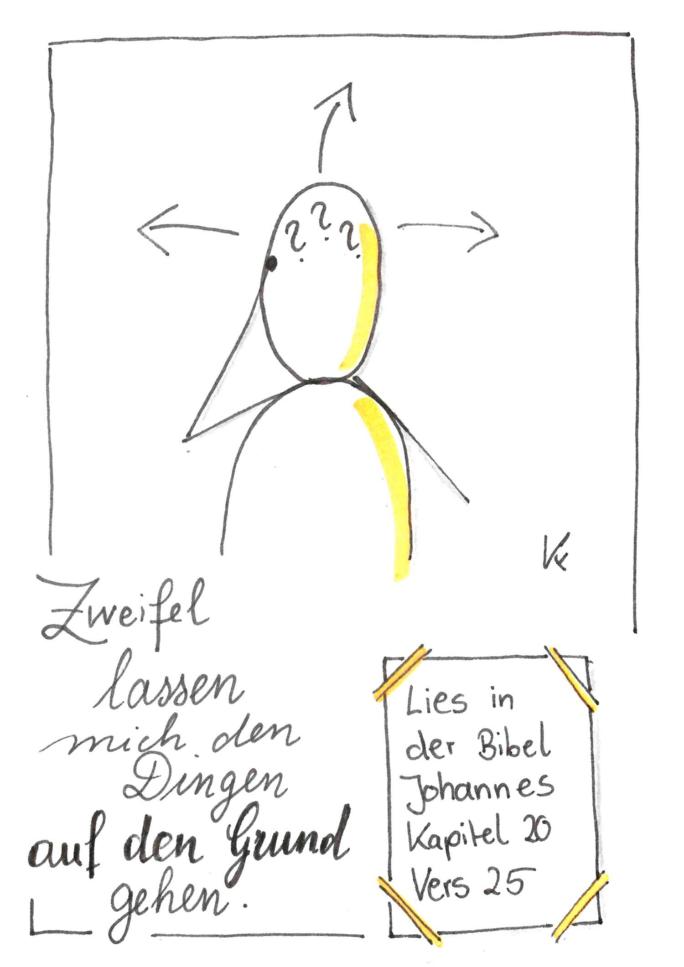 ? ? ?
Zweifel
lassen
mich den
Dingen
auf den Grund
gehen.
Lies in
der Bibel
Johannes
Kapitel 20
Vers 25